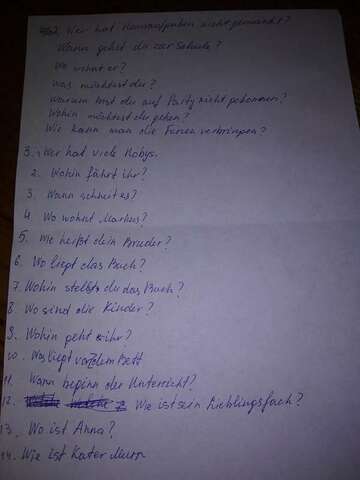 Wer hat Hausaufgaben nicht gemacht?
Wann gehst du zur Schule?
Wo wohnt er?
was möchtest du?
warum bist du auf Party nicht gekommen?
Wohin möchtest du gehen?
Wie kann man die Ferien verbringen?
Wer hat viele Hobys.
2. Wohin fährt ihr?
3. Wann schneit es?
4. Wo wohnt Markus?
5. Wie heißt dein Bruder?
6. Wo liegt das Buch?
7. Wohin stellst du das Buch?
8. Wo sind die Kinder?
9. Wohin geht ihr?
10. Was liegt vor dem Bett
11. Wann beginn der Unterricht?
12. Wie ist sein Lieblingsfach?
13. Wo ist Anna?
14. Wie ist Kater